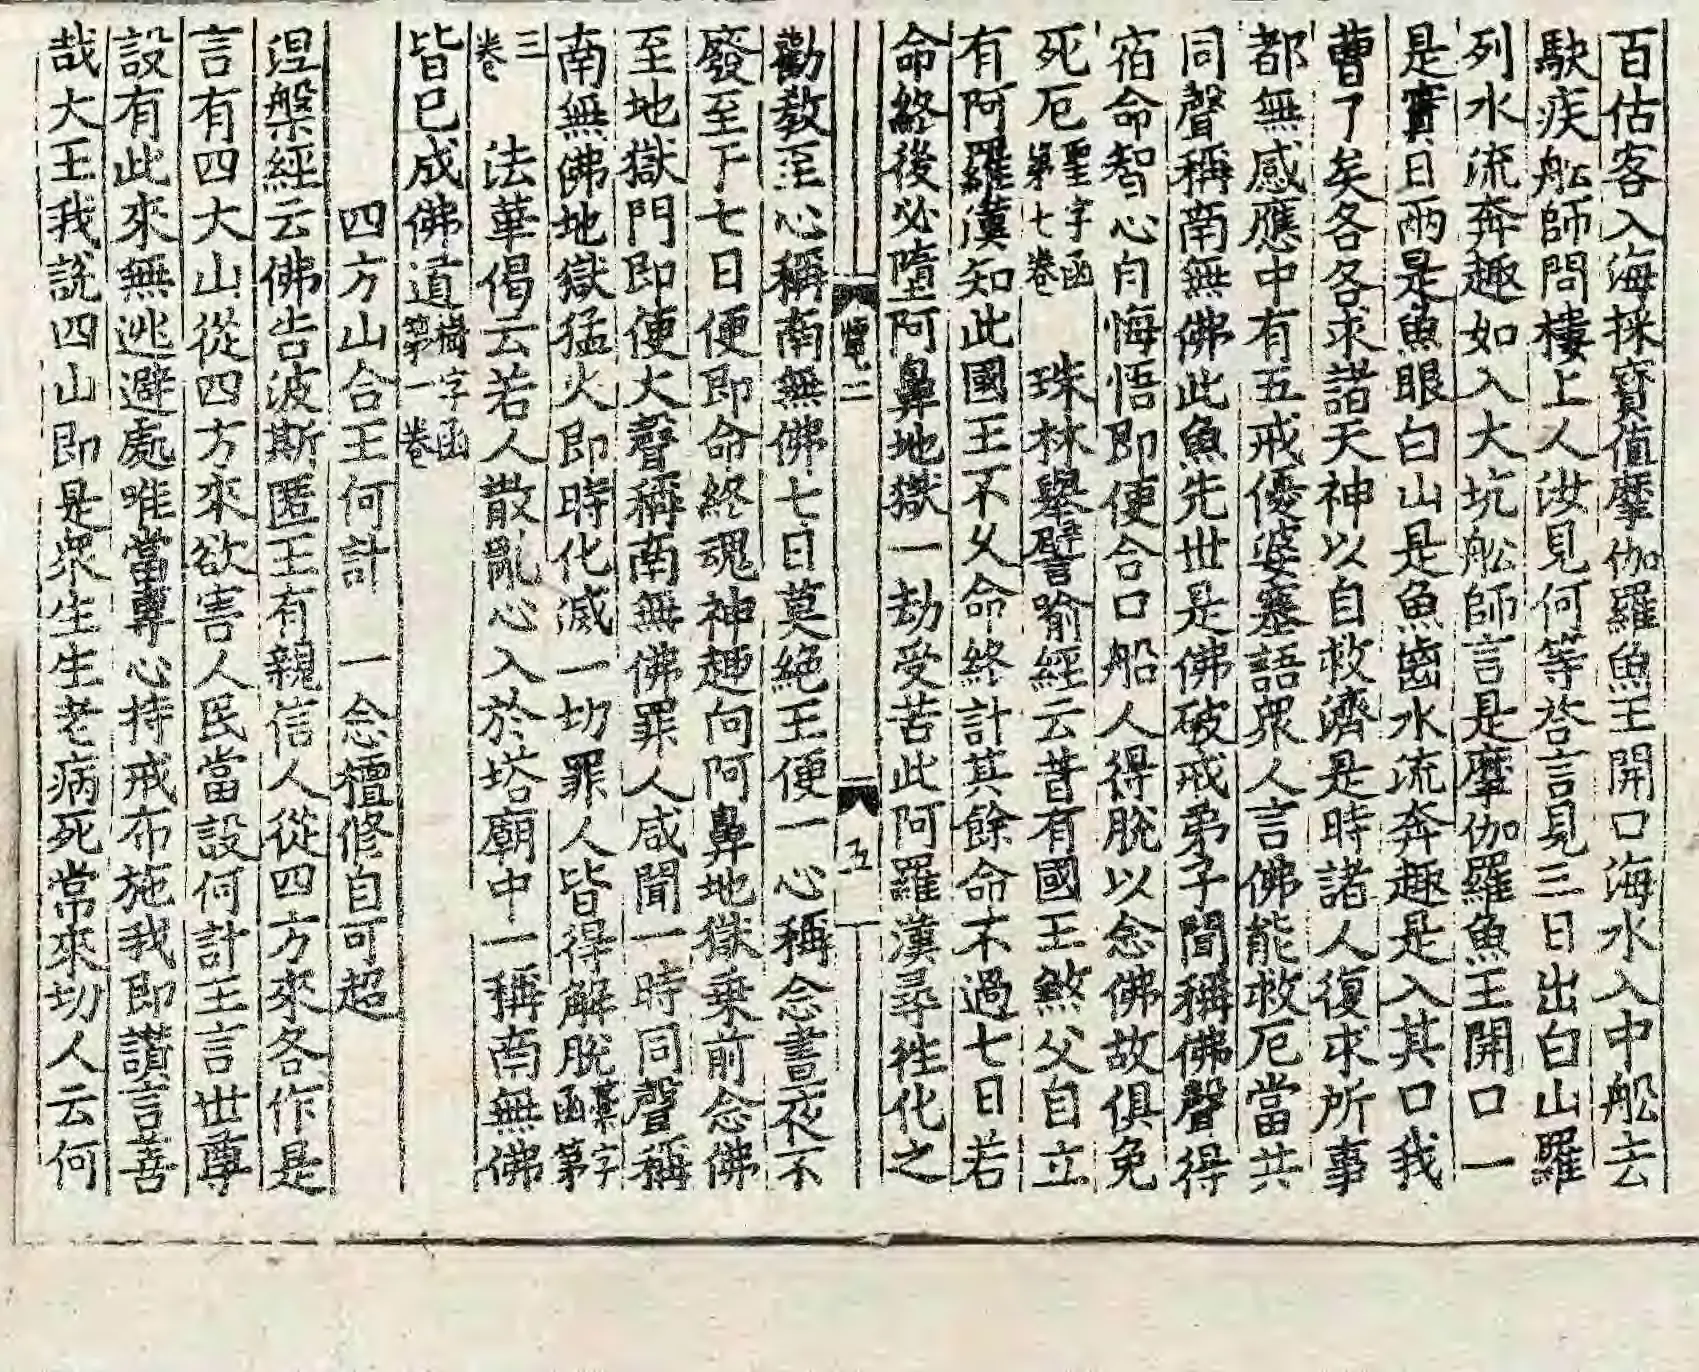 百估客入海採寳值摩伽羅魚王開口海水入中舩去
駃疾舩師問樓上人汝見何等荅言見三日出白山羅
列水流奔趣如入大坑舩師言是摩伽羅魚王開口一
是實日兩是魚眼白山是魚齒水流奔趣是入其口我
曹了矣各各求諸天神以自救濟是時諸人復求所事
都無感應中有五戒優婆塞語衆人言佛能救厄當共
同聲稱南無佛此魚先世是佛破戒弟子聞稱佛聲得
宿命智心自悔悟即便合口船人得脫以念佛故俱免
死厄聖字函第七卷 珠林舉譬喻經云昔有國王煞父自立
有阿羅漢知此國王不久命終計其餘命不過七日若
命終後必墮阿鼻地獄一劫受苦此阿羅漢尋往化之
覽二 五
勸教至心稱南無佛七日莫絶王便一心稱念晝夜不
發至下七日便即命終魂神趣向阿鼻地獄乗前念佛
至地獄門即便大聲稱南無佛罪人咸聞一時同聲稱
南無佛地獄猛火即時化滅一切罪人皆得解脫藁字函第
三卷 法華偈云若人散亂心入於塔廟中一稱南無佛
皆已成佛道 字函第一卷
四方山合王何計 一念檀修自可超
涅槃經云佛告波斯匿王有親信人從四方來各作是
言有四大山從四方來欲害人民當設何計王言世尊
設有此來無逃避處唯當專心持戒布施我即讃言善
哉大王我說四山即是衆生生老病死常來切人云何